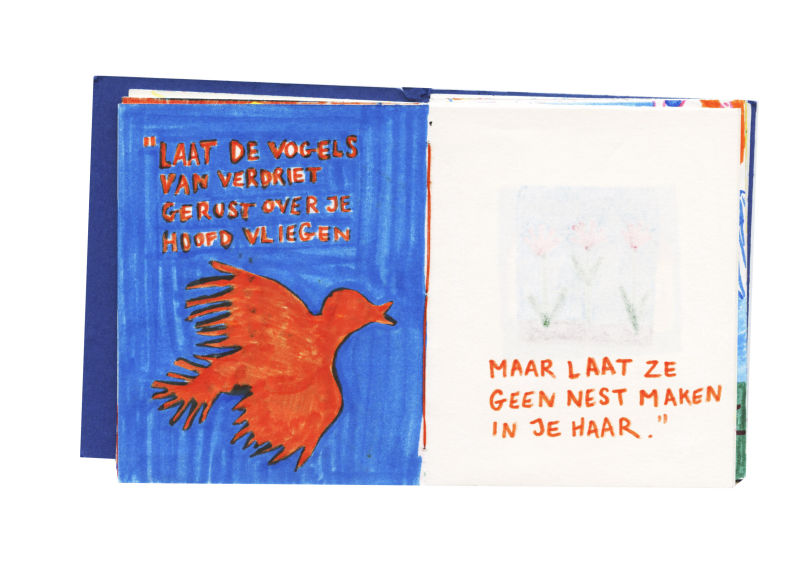 "LAAT DE VOGELS
VAN VERDRIET
GERUST OVER JE
HOOFD VLIEGEN
MAAR LAAT ZE
GEEN NEST MAKEN
IN JE HAAR."